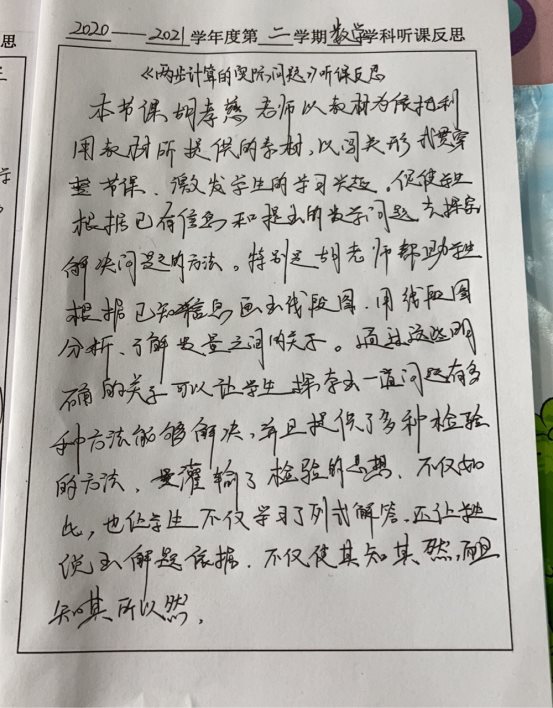 2020——2021学年度第 二 学期 数学 学科听课反思
《两步计算的实际问题》听课反思
本节课胡孝慈老师以教材为依托利
用教材所提供的素材，以闯关形式贯穿
整节课、激发学生的学习兴趣。促使学生
根据已有信息和提出的数学问题去探究
解决问题的方法。特别是胡老师帮助学生
根据已知信息画出线段图、用线段图
分析、了解数量之间的关系。通过这些明
确的关系可以让学生探索出一道问题有多
种方法能够解决、并且提供了多种检验
的方法、灌输了检验的思想、不仅如
此，也让学生不仅学习了列式解答、还让学生
说出解题依据、不仅使其知其然，而且
知其所以然。
思